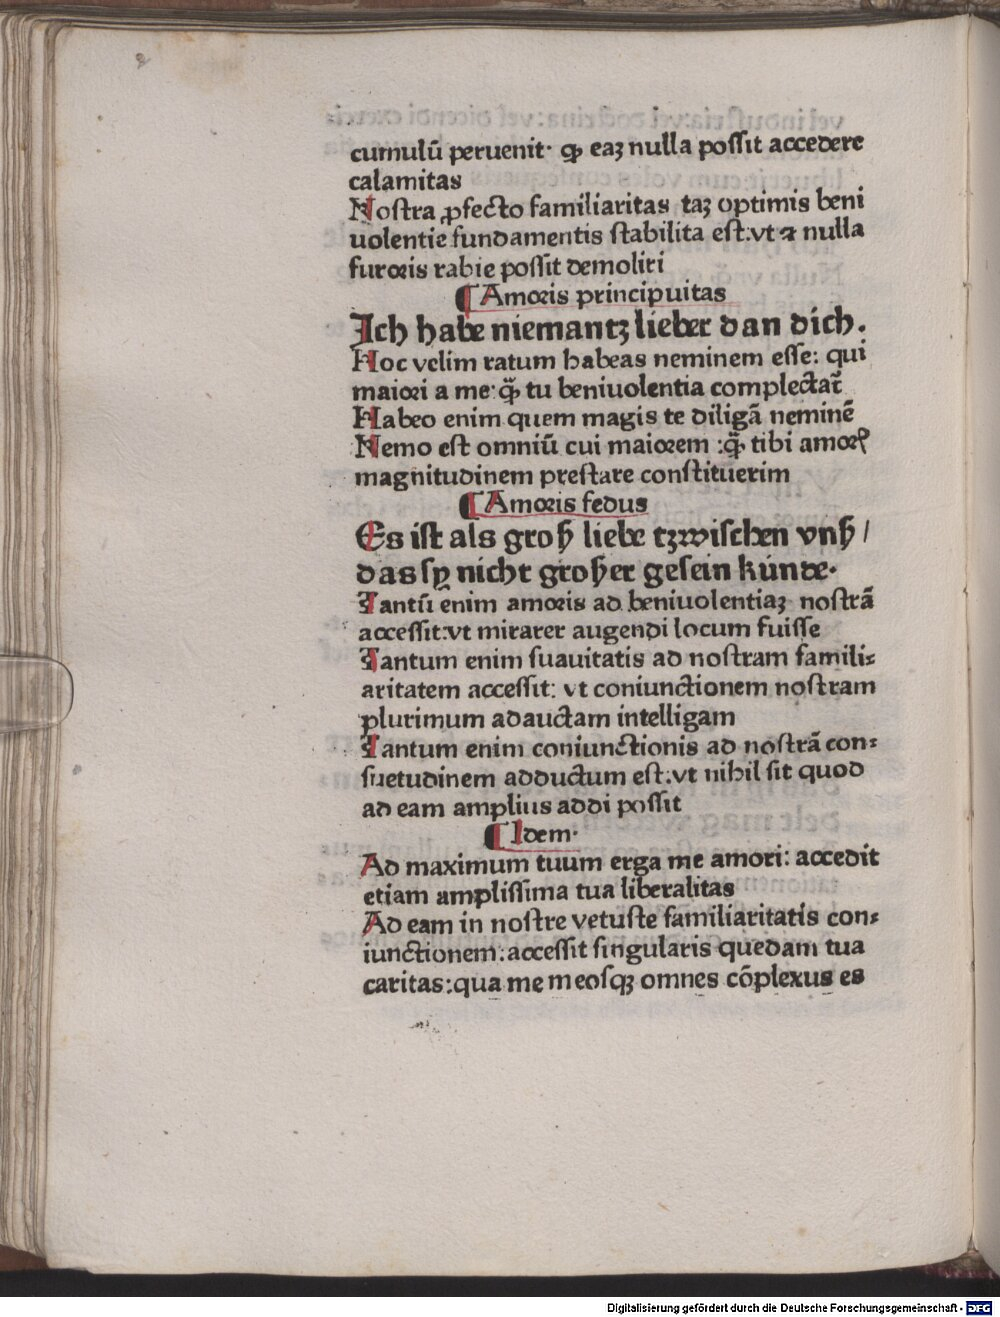 cumulū peruenit· ꝙ eaꝫ nulla poſſit accedere
calamitas
Noſtra ꝓfecto familiaritas taꝫ optimis beni
uolentie fundamentis ſtabilita eſt:vt ⁊ nulla
furoꝛis rabie poſſit demoliri
¶ Amoꝛis principuitas
Ich habe niemantz lieber dan dich.
Hoc velim ratum habeas neminem eſſe: qui
maioꝛi a me:ꝙ̄ tu beniuolentia complectat᷑
Habeo enim quem magis te diligā neminē
Nemo eſt omniū cui maioꝛem :ꝙ̄ tibi amoꝛꝭ
magnitudinem preſtare conſtituerim
¶ Amoꝛis fedus
Es iſt als groß liebe tzwiſchen vnß /
das ſy nicht groſſer geſein kúnde·
Tantū enim amoꝛis ad beniuolentiaꝫ noſtrā
acceſſit:vt mirarer augendi locum fuiſſe
Tantum enim ſuauitatis ad noſtram famili⸗
aritatem acceſſit: vt coniunctionem noſtram
plurimum adauctam intelligam
Tantum enim coniunctionis ad noſtrā con⸗
ſuetudinem adductum eſt:vt nihil ſit quod
ad eam amplius addi poſſit
¶ Idem·
Ad maximum tuum erga me amori: accedit
etiam ampliſſima tua liberalitas
Ad eam in noſtre vetuſte familiaritatis con⸗
iunctionem:acceſſit ſingularis quedam tua
caritas:qua me meoſqꝫ omnes cōplexus es
Digitalisierung gefördert durch die Deutsche Forschungsgemeinschaft - DFG